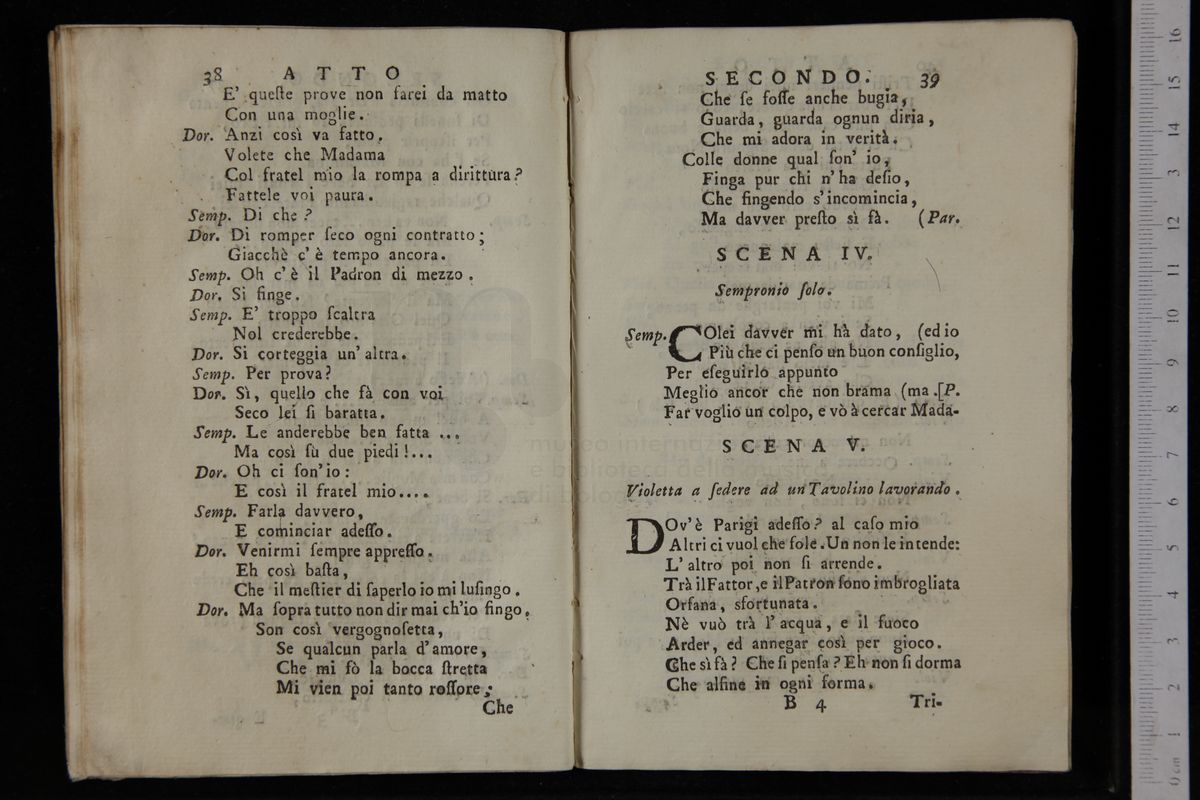 38 ATTO
E' queſte prove non farei da matto
Con una moglie.
Dor. Anzi così va fatto.
Volete che Madama
Col fratel mio la rompa a dirittura?
Fattele voi paura.
Semp. Di che?
Dor. Di romper ſeco ogni contratto;
Giacchè c'è tempo ancora.
Semp. Oh c'è il Padron di mezzo.
Dor. Si finge.
Semp. E' troppo ſcaltra
Nol crederebbe.
Dor. Si corteggia un'altra.
Semp. Per prova?
Dor. Sì, quello che fà con voi
Seco lei ſi baratta.
Semp. Le anderebbe ben fatta ...
Ma così fù due piedi!...
Dor. Oh ci ſon'io:
E così il fratel mio....
Semp. Farla davvero,
E cominciar adeſſo.
Dor. Venirmi ſempre appreſſo.
Eh così baſta,
Che il meſtier di ſaperlo io mi luſingo.
Dor. Ma ſopra tutto non dir mai ch'io fingo.
Son così vergognoſetta,
Se qualcun parla d'amore,
Che mi fò la bocca ſtretta
Mi vien poi tanto roſſore;
Che
SECONDO. 39
Che ſe foſſe anche bugia,
Guarda, guarda ognun diria,
Che mi adora in verità.
Colle donne qual ſon' io,
Finga pur chi n'ha deſio,
Che fingendo s'incomincia,
Ma davver preſto sì fà. (Par.
SCENA IV.
Sempronio ſolo.
Semp. COlei davver mi hà dato, (ed io
Più che ci penſo un buon conſiglio,
Per eſeguirlo appunto
Meglio ancor che non brama (ma.[P.
Far voglio un colpo, e vò à cercar Mada-
SCENA V.
Violetta a ſedere ad un Tavolino lavorando.
DOv'è Parigi adeſſo? al caſo mio
Altri ci vuol che ſole. Un non le intende:
L' altro poi non ſi arrende.
Trà il Fattor, e il Patron ſono imbrogliata
Orfana, sfortunata.
Nè vuò trà l'acqua, e il fuoco
Arder, ed annegar così per gioco.
Che sì fà? Che ſi penſa? Eh non ſi dorma
Che alfine in ogni forma.
B 4 Tri-
museo internaz
e biblioteca della musica
di bolo
0 cm 1 2 3 4 5 6 7 8 9 10 11 12 13 14 15 16